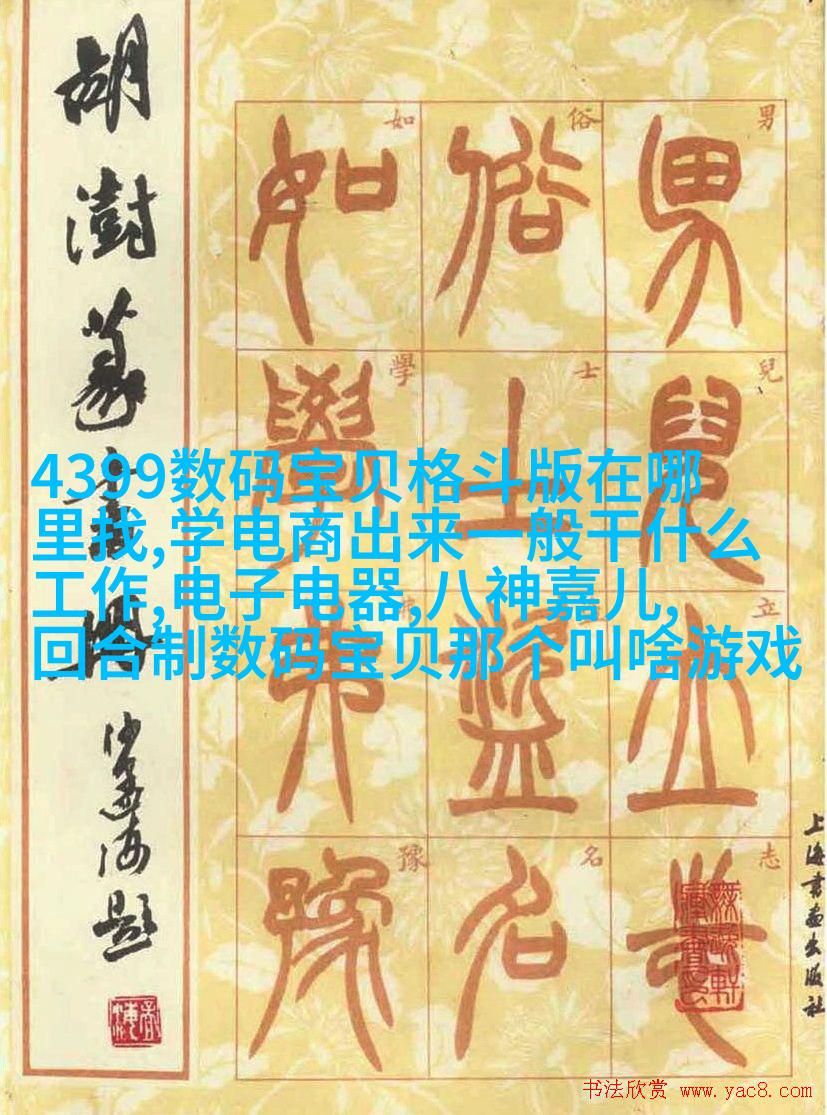 胡澍篆書冊
沙孟海題
男兒立志
俗士盜名
如學弗豫
男
兒
立
志
俗
士
名
如
學
弗
豫
4399数码宝贝格斗版在哪
里找,学电商出来一般干什么
工作,电子电器,八神嘉儿,
回合制数码宝贝那个叫啥游戏
上海書畫出版社
书法欣赏 www.yac8.com